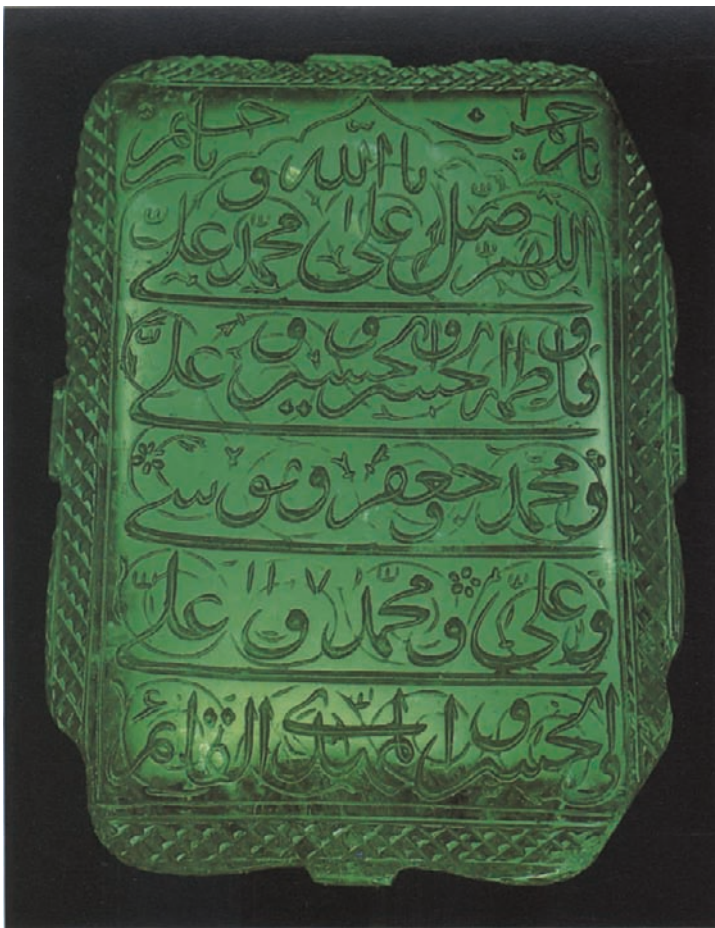 يا رحمن يا رحيم
يا الله
اللهم صل على محمد و علي
و فاطمه و الحسن و الحسين و علي
و محمد و جعفر و موسى
و علي و محمد و علي
و الحسن و المهدي القائم